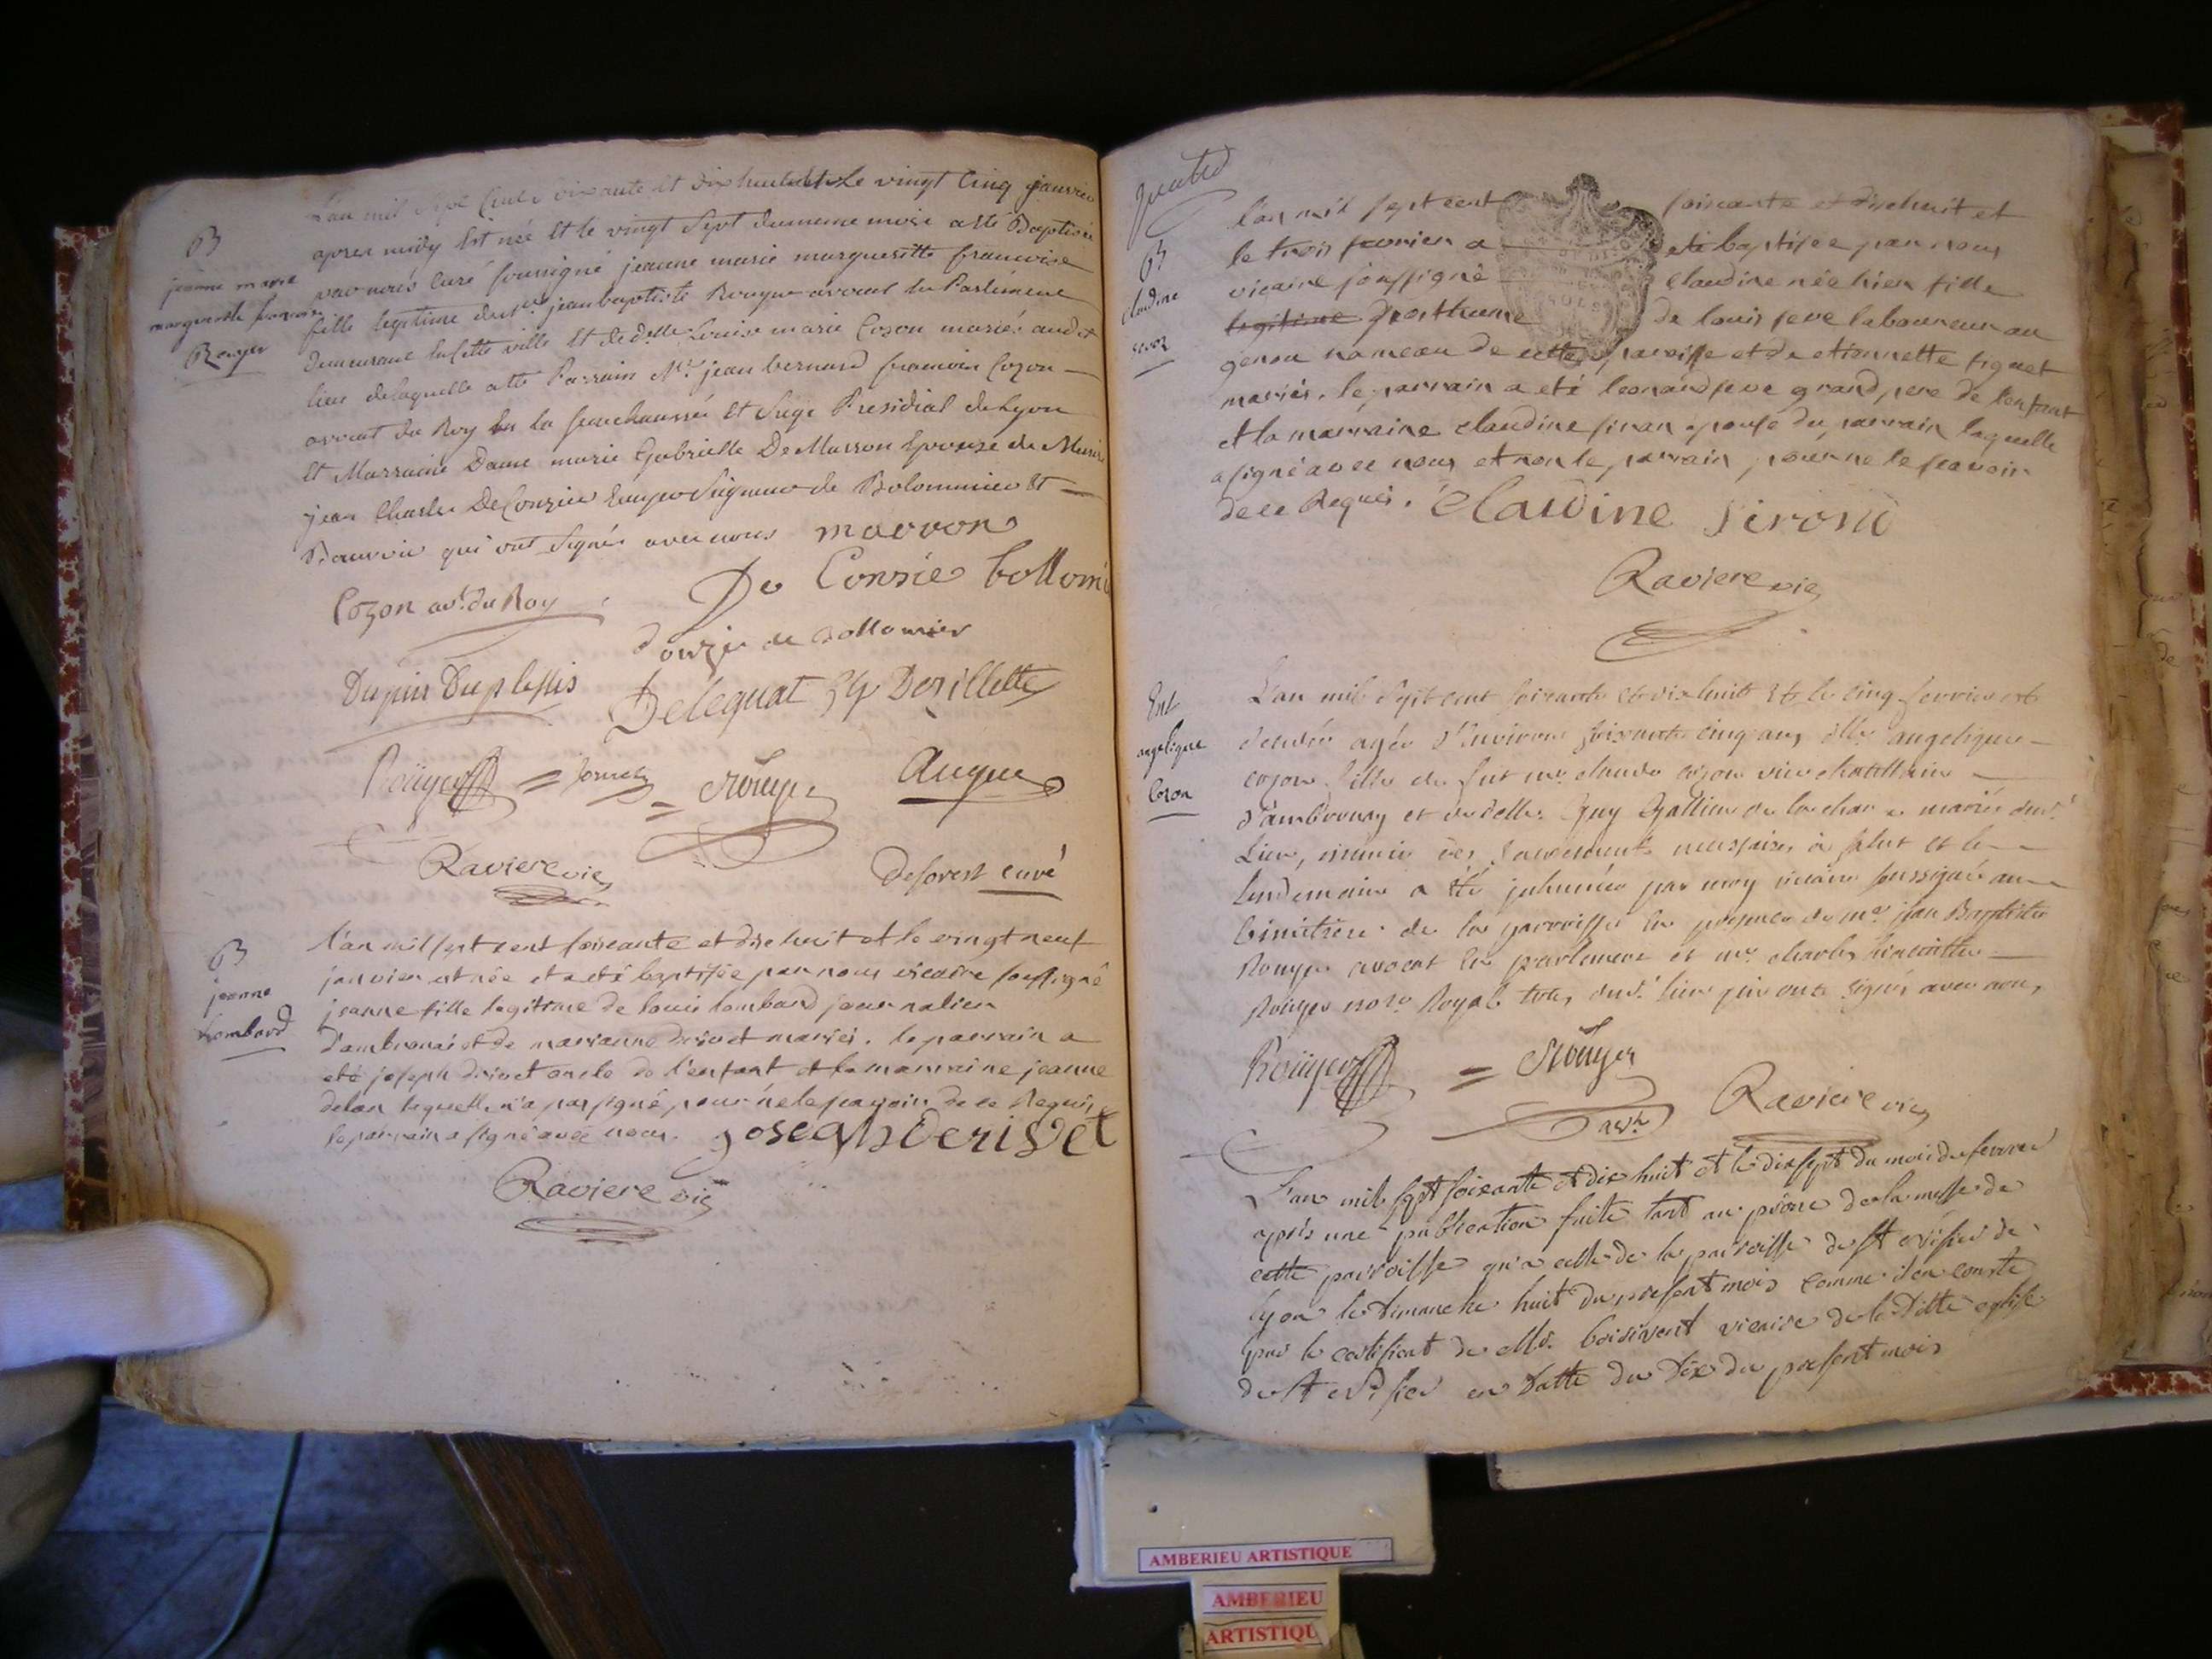 B
jeanne marie
marguerite francoise
Rouyer
L'an mil Sept Cents soixante et dix huit et le vingt Cinq janvier
apres midy est née et le vingt Sept du meme mois a été Baptisée
par nous Curé soussigné jeanne marie marguerite francoise
fille legitime de Mr. jean baptiste Rouyer avocat en Parlement
demeurant en cette ville et de delle. Louise marie Cozon mariés audit
lieu de laquelle a été Parrain Mr. jean bernard francois Cozon
avocat du Roy en la senechaussée et siege Presidial de Lyon
et Marraine Dame marie Gabrielle De Marron Epouse de Messire
jean Charles De Conzie Seigneur de Bolommier et
qui ont signé avec nous marron
Cozon av. du Roy
De Conzie bollomi
de Bollomier
Dupin Duplessis
Deleguat
Rouyer
Rouyer
Auger
Raviere vic
deforest curé
B
jeanne
Lombard
l'an mil sept cent soixante et dix huit et le vingt neuf
janvier est née et a eté baptisée par nous vicaire soussigné
jeanne fille legitime de louis lombard journalier
d'ambronai et de marianne derivet mariés. le parrain a
eté joseph derivet oncle de l'enfant et la marraine jeanne
delan laquelle n'a pas signé pour ne le savoir de ce Requis
le parrain a signé avec nous. joseph Derivet
Raviere vic
B
claudine
l'an mil sept cent soixante et dixhuit et
le trois fevrier a eté baptisée par nous
vicaire soussigné claudine née hier fille
legitime posthume de louis seve laboureur au
genou hameau de cette paroisse et de etiennette siguet
mariés. le parrain a eté leonard seve grand pere de l'enfant
et la marraine claudine siran epouse du parrain laquelle
a signé avec nous et non le parrain pour ne le scavoir
de ce Requis. Claudine sirond
Raviere vic
Ent
angelique
Cozon
L'an mil Sept cent soixante et dix huit et le cinq fevrier est
decedée agée d'environ soixante cinq ans dlle. angelique
cozon fille de feu mr. claude cozon vice chatellain
d'ambronay et de delle. Guy Gallien de la chau mariés aud.
Lieu, munie des sacrements necessaires à salut et le
lendemain a été inhumée par moy vicaire soussigné au
Cimitiere de la parroisse en presence de mr. jean Baptiste
Rouyer avocat en parlement et mr. charles hiacinthe
Rouyer nore. Royal tous dud. lieu qui ont signés avec nous
Rouyer
Rouyer
Raviere vic
L'an mil sept soixante et dix huit et le dix sept du mois de fevrier
après une publication faite tant au prône de la messe de
cette parroisse qu'à celle de la parroisse de St nisier de
lyon le dimanche huit du present mois comme il en conste
par le certificat de Mr. Boisivent vicaire de la ditte eglise
de St nisier en datte du dix du present mois
AMBERIEU ARTISTIQUE
AMBERIEU
ARTISTIQU